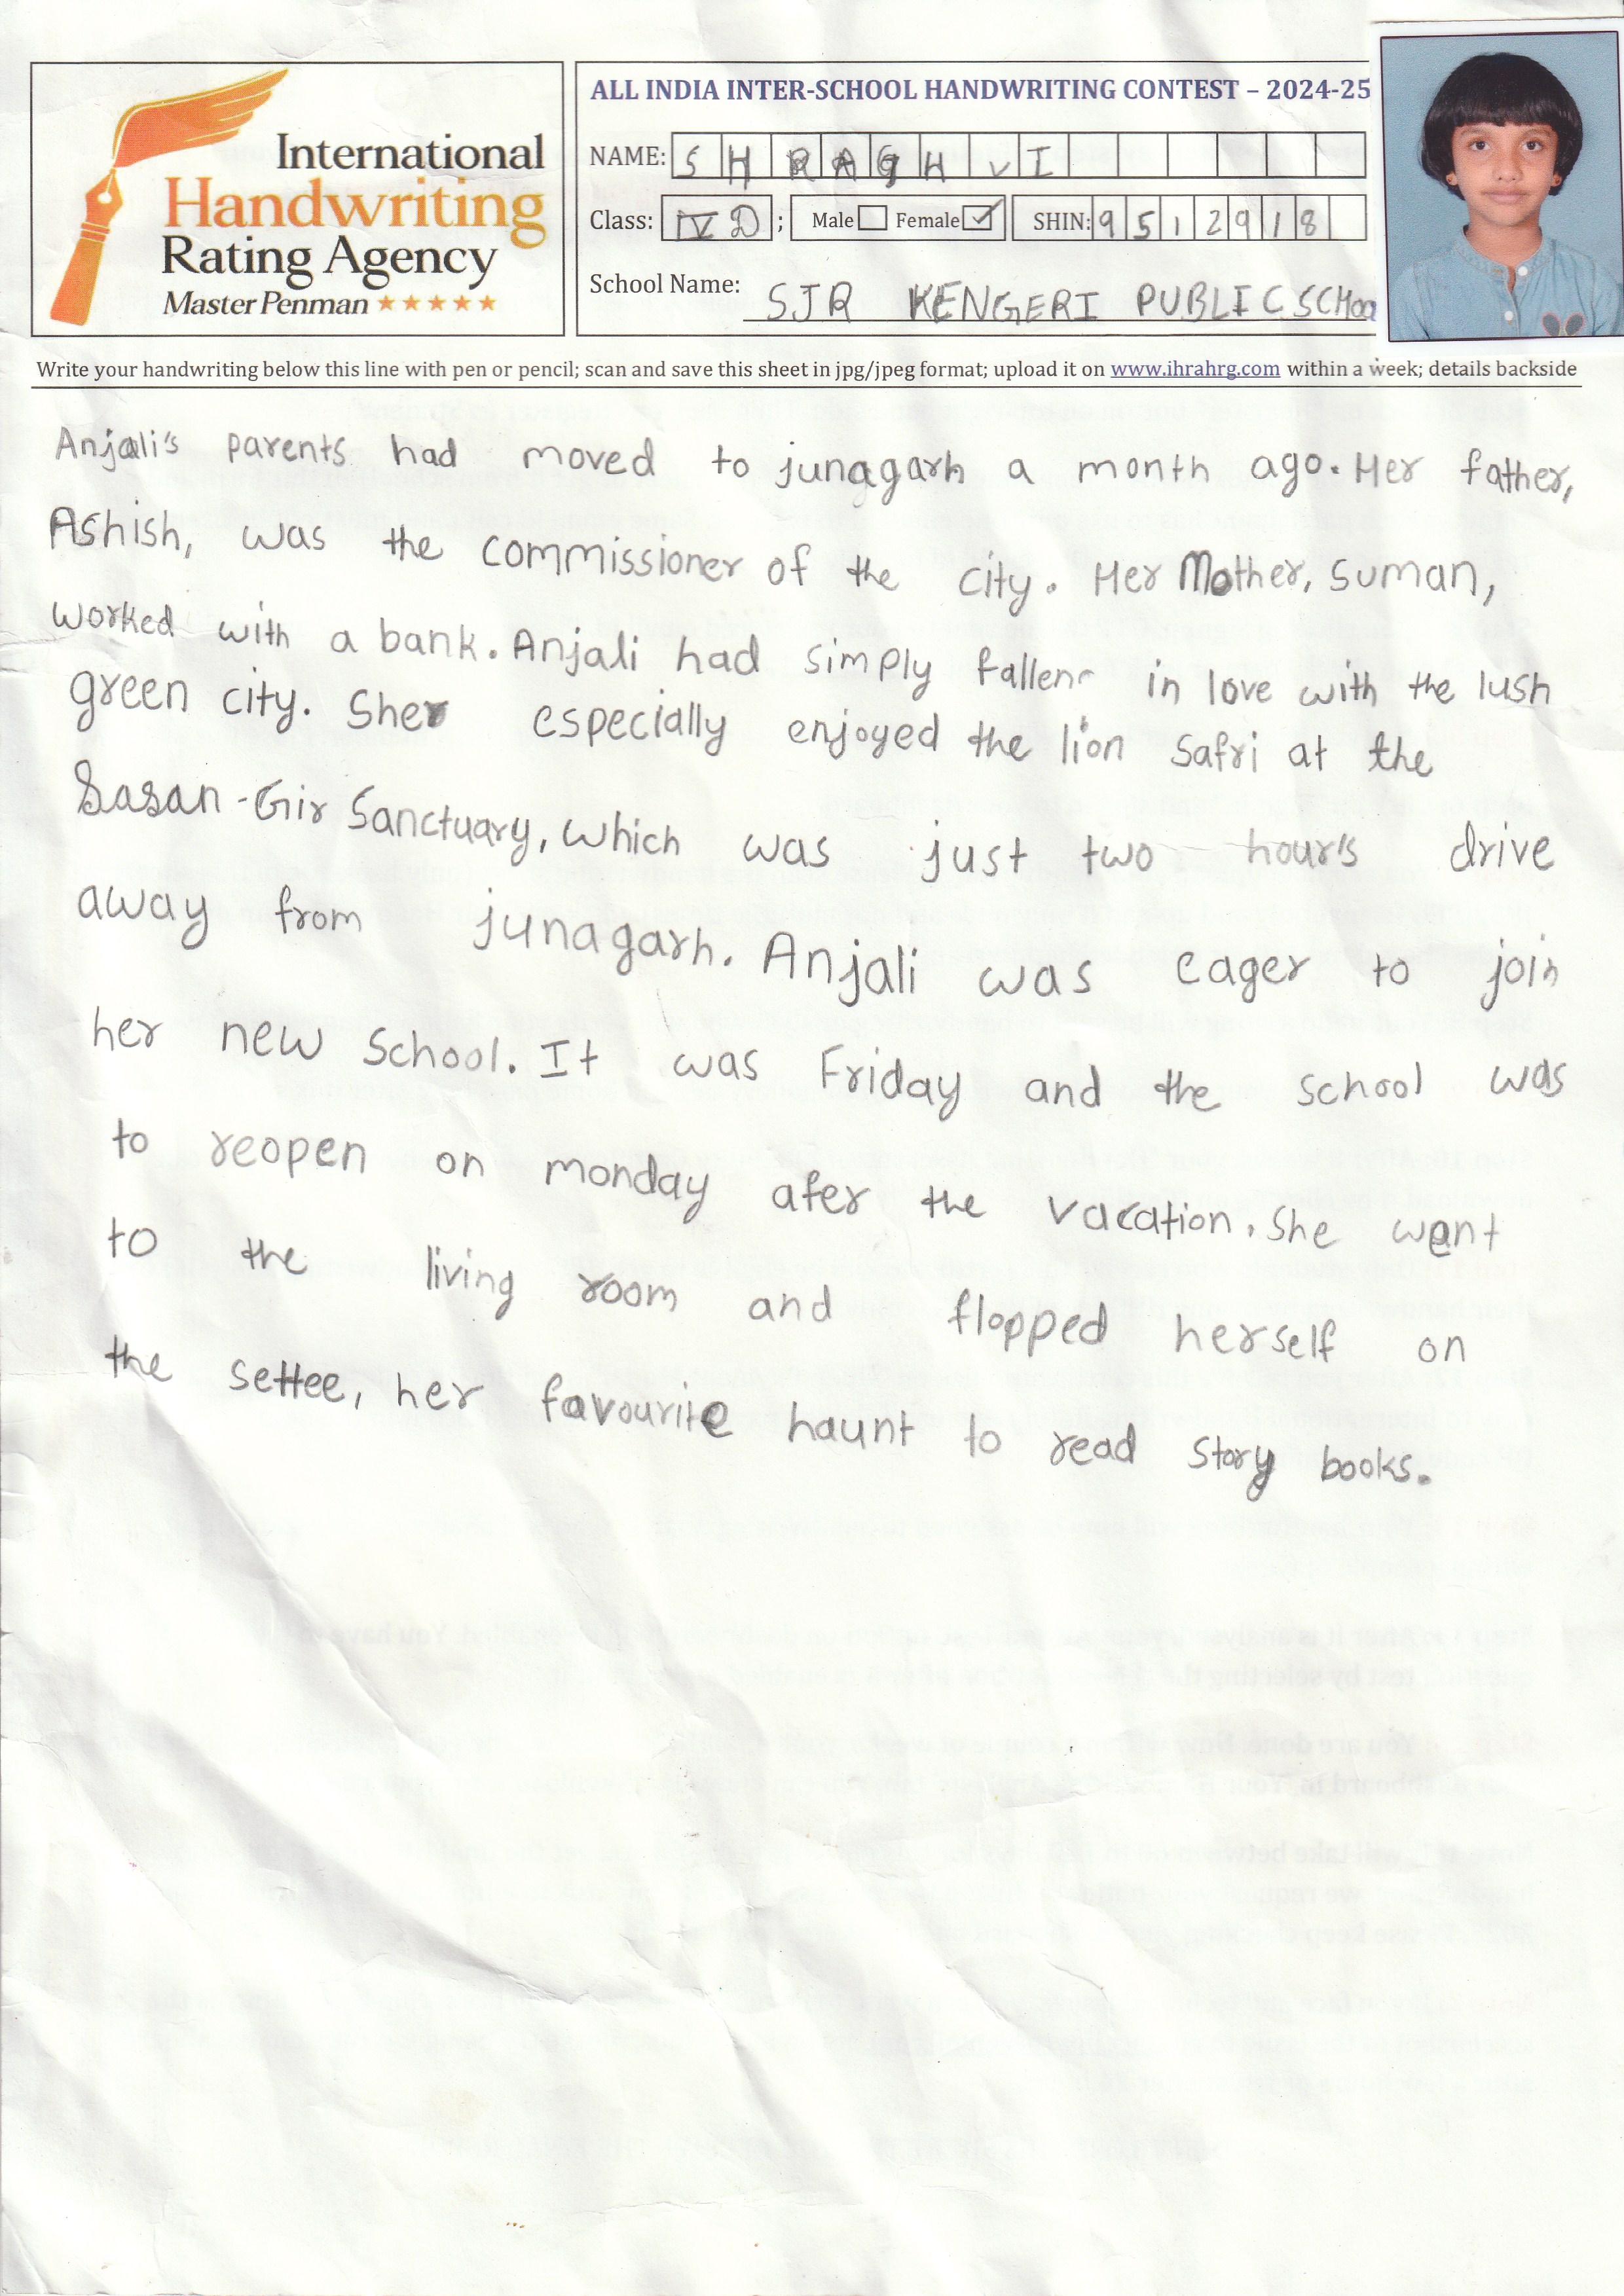 International
Handwriting
Rating Agency
Master Penman
ALL INDIA INTER-SCHOOL HANDWRITING CONTEST – 2024-25
NAME: SHRAGHVI
Class: IV D ; Male Female SHIN: 9512918
School Name: SJR KENGERI PUBLIC SCHOO
Write your handwriting below this line with pen or pencil; scan and save this sheet in jpg/jpeg format; upload it on www.ihrahrg.com within a week; details backside
Anjali's parents had moved to junagarh a month ago. Her father,
Ashish, was the commissioner of the city. Her Mother, suman,
worked with a bank. Anjali had simply fallen in love with the lush
green city. She especially enjoyed the lion safri at the
Sasan-Gir Sanctuary, which was just two hour's drive
away from junagarh. Anjali was eager to join
her new School. It was Friday and the school was
to reopen on monday afer the vacation. She went
to the living room and flopped herself on
the settee, her favourite haunt to read story books.